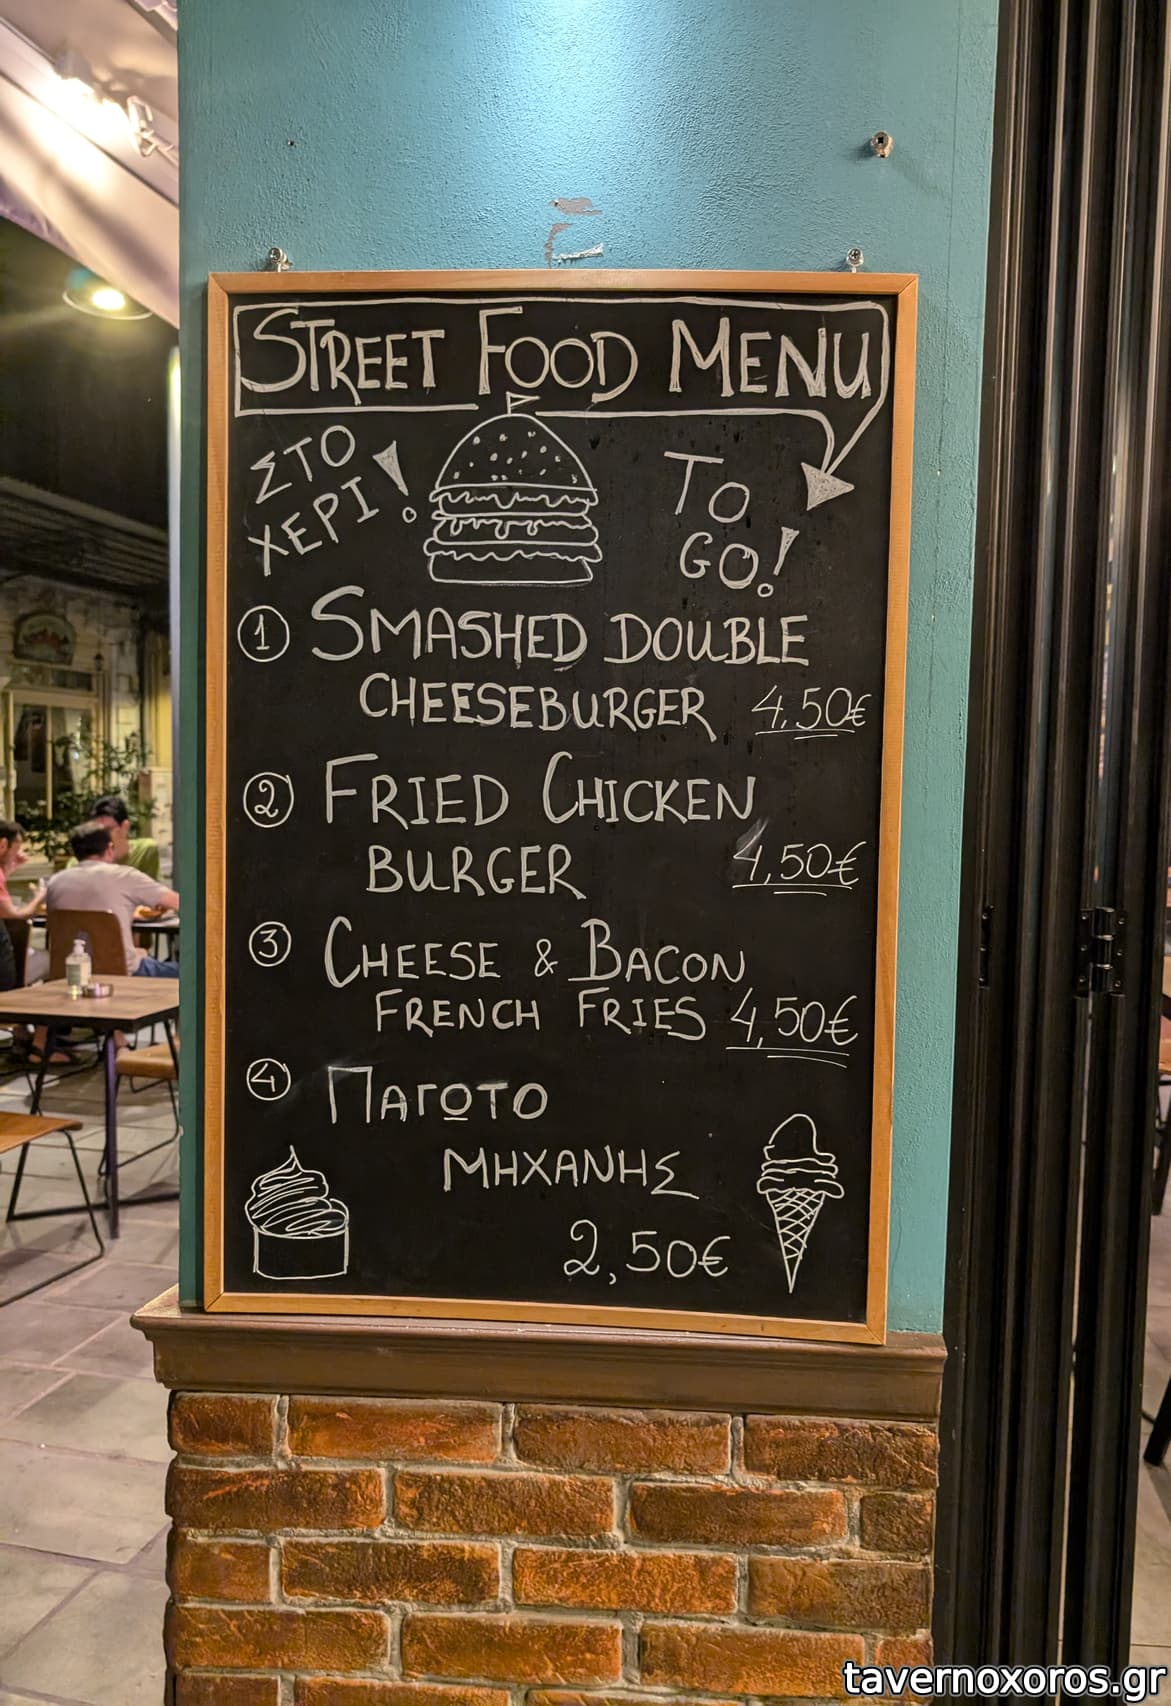 STREET FOOD MENU
ΣΤΟ
ΧΕΡΙ!
TO
GO!
1 SMASHED DOUBLE
CHEESEBURGER 4,50€
2 FRIED CHICKEN
BURGER 4,50€
3 CHEESE & BACON
FRENCH FRIES 4,50€
4 ΠΑΓΩΤΟ
ΜΗΧΑΝΗΣ
2,50€
tavernoxoros.gr